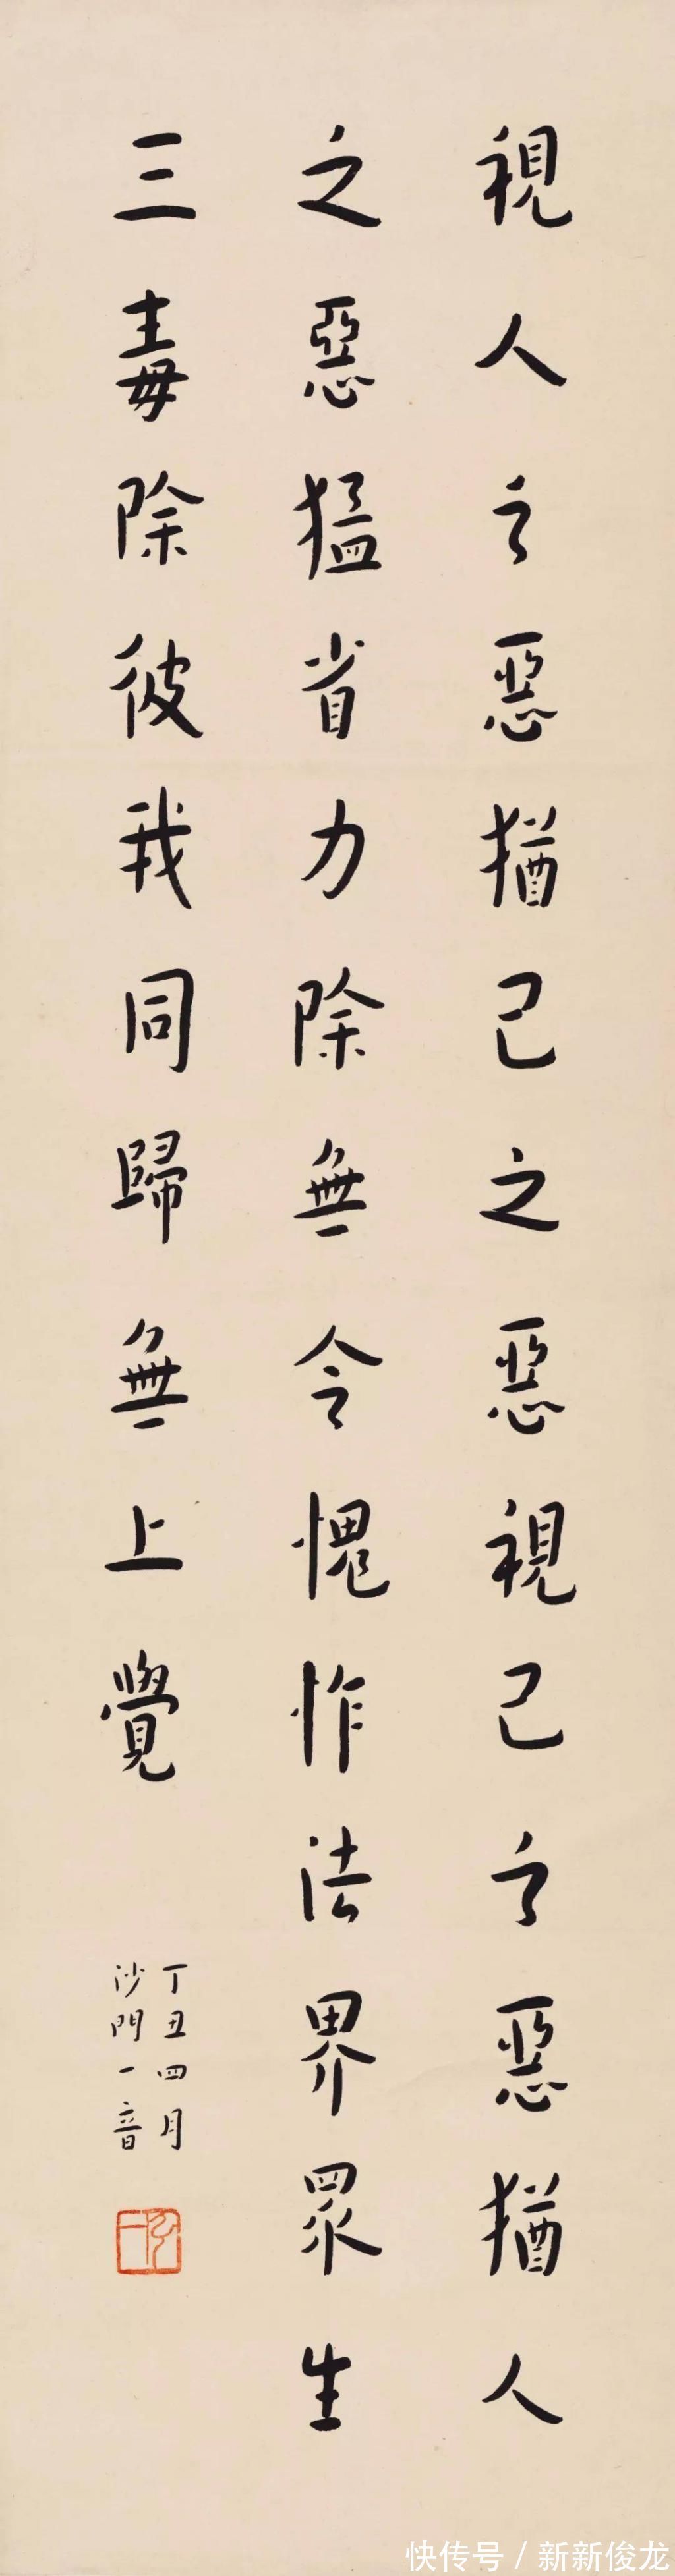 視人之惡猶己之惡視己之惡猶人
之惡猛省力除無令愧怍法界眾生
三毒除彼我同歸無上覺
丁丑四月
沙門一音
快传号 / 新新俊龙